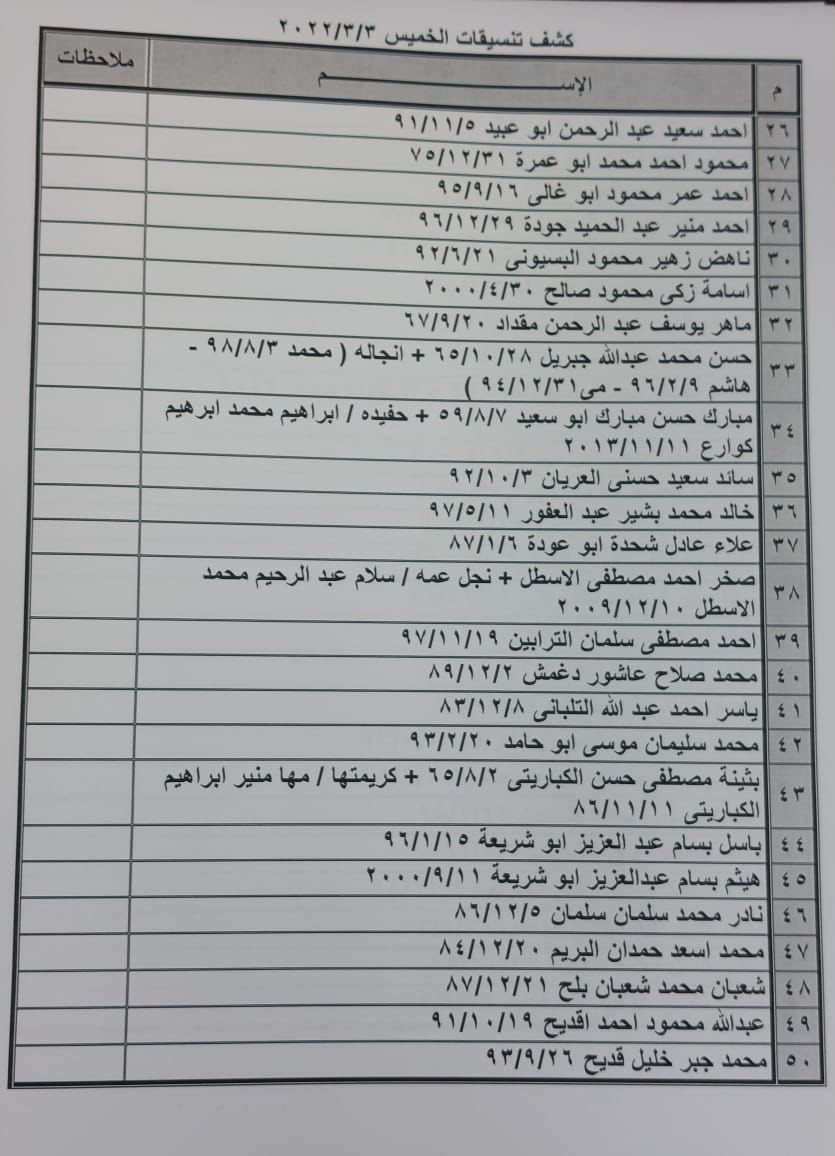 كشف تنسيقات الخميس ٢٠٢٢/٣/٣
م الإســـــــــم ملاحظات
٢٦ احمد سعيد عبد الرحمن ابو عبيد ٩١/١١/٥
٢٧ محمود احمد محمد ابو عمرة ٧٥/١٢/٣١
٢٨ احمد عمر محمود ابو غالى ٩٥/٩/١٦
٢٩ احمد منير عبد الحميد جودة ٩٦/١٢/٢٩
٣٠ ناهض زهير محمود البسيونى ٩٢/٦/٢١
٣١ اسامة زكى محمود صالح ٢٠٠٠/٤/٣٠
٣٢ ماهر يوسف عبد الرحمن مقداد ٦٧/٩/٢٠
٣٣ حسن محمد عبدالله جبريل ٦٥/١٠/٢٨ + انجاله ( محمد ٩٨/٨/٣ -
هاشم ٩٦/٢/٩ - مى٩٤/١٢/٣١ )
٣٤ مبارك حسن مبارك ابو سعيد ٥٩/٨/٧ + حفيده / ابراهيم محمد ابرهيم
كوارع ٢٠١٣/١١/١١
٣٥ سائد سعيد حسنى العريان ٩٢/١٠/٣
٣٦ خالد محمد بشير عبد العفور ٩٧/٥/١١
٣٧ علاء عادل شحدة ابو عودة ٨٧/١/٦
٣٨ صخر احمد مصطفى الاسطل + نجل عمه / سلام عبد الرحيم محمد
الاسطل ٢٠٠٩/١٢/١٠
٣٩ احمد مصطفى سلمان الترابين ٩٧/١١/١٩
٤٠ محمد صلاح عاشور دغمش ٨٩/١٢/٢
٤١ ياسر احمد عبد الله التلبانى ٨٣/١٢/٨
٤٢ محمد سليمان موسى ابو حامد ٩٣/٢/٢٠
٤٣ بثينة مصطفى حسن الكباريتى ٦٥/٨/٢ + كريمتها / مها منير ابراهيم
الكباريتى ٨٦/١١/١١
٤٤ باسل بسام عبد العزيز ابو شريعة ٩٦/١/١٥
٤٥ هيثم بسام عبدالعزيز ابو شريعة ٢٠٠٠/٩/١١
٤٦ نادر محمد سلمان سلمان ٨٦/١٢/٥
٤٧ محمد اسعد حمدان البريم ٨٤/١٢/٢٠
٤٨ شعبان محمد شعبان بلح ٨٧/١٢/٢١
٤٩ عبدالله محمود احمد اقديح ٩١/١٠/١٩
٥٠ محمد جبر خليل قديح ٩٣/٩/٢٦